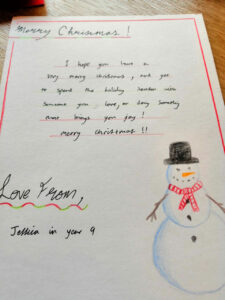 Merry Christmas!
I hope you have a
very merry christmas, and get
to spend the holiday season with
someone you love, or doing something
that brings you joy!
merry christmas!!
Love From,
Jessica in year 9